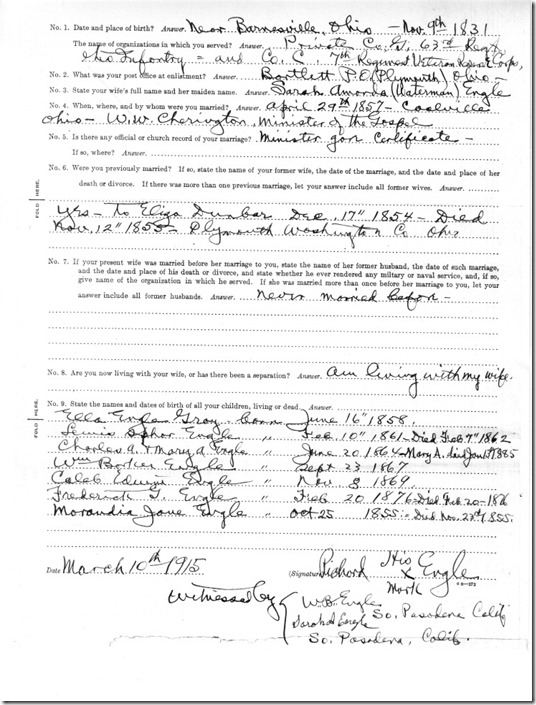 No. 1. Date and place of birth? Answer. Near Barnesville, Ohio — Nov. 9th 1831
The name of organizations in which you served? Answer. Private Co. G, 63rd Regt.
Ohio Infantry = and Co. C, 7th Regiment Veteran Reserve Corps,
No. 2. What was your post office at enlistment? Answer. Bartlett P.O. (Plymouth) Ohio —
No. 3. State your wife's full name and her maiden name. Answer. Sarah Amanda (Waterman) Engle
No. 4. When, where, and by whom were you married? Answer. April 29th 1857 — Coolville
Ohio — W.W. Cherington, Minister of the Gospel
No. 5. Is there any official or church record of your marriage? Minister gon Certificate —
If so, where? Answer.
No. 6. Were you previously married? If so, state the name of your former wife, the date of the marriage, and the date and place of her
death or divorce. If there was more than one previous marriage, let your answer include all former wives. Answer.
FOLD HERE.
Yes — to Eliza Dunbar Dec. 17" 1854 — Died
Nov. 12" 1855 — Plymouth Washington Co. Ohio
No. 7. If your present wife was married before her marriage to you, state the name of her former husband, the date of such marriage,
and the date and place of his death or divorce, and state whether he ever rendered any military or naval service, and, if so,
give name of the organization in which he served. If she was married more than once before her marriage to you, let your
answer include all former husbands. Answer. Never married befor —
No. 8. Are you now living with your wife, or has there been a separation? Answer. Am living with my wife.
No. 9. State the names and dates of birth of all your children, living or dead. Answer.
FOLD HERE.
Ella Engle Gray — born June 16" 1858
Lewis Engle " Feb. 10" 1861 — Died Feb 7" 1862
Charles A. & Mary A. Engle " June 20, 1864 — Mary A. died Jan 1885
Wm Barker Engle " Sept 23 1867
Caleb Edwin Engle " Nov 8 1869
Frederick G. Engle " Feb 20 1876 — Died Feb. 20 — 1876
Morandia Jane Engle " Oct 25 1855 — Died Nov. 23rd 1855.
Date March 10th 1915
(Signature) Richard His X Mark Engle
Witnessed by { W.B. Engle
So. Pasadena Calif
Sarah A Engle
So. Pasadena, Calif.